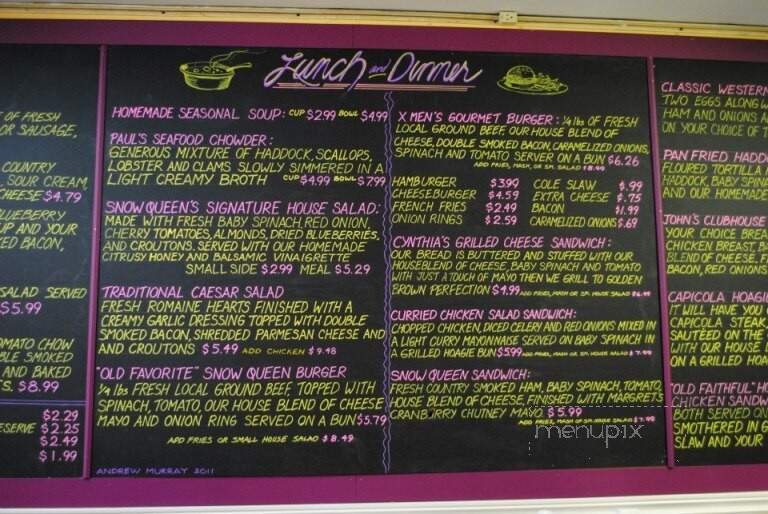 OF FRESH
OR SAUSAGE,
COUNTRY
SOUR CREAM,
CHEESE $4.79
BLUEBERRY
UP AND YOUR
KED BACON,
SALAD SERVED
$5.99
TOMATO CHOW
BLE SMOKED
AND BAKED
TS. $8.99
$2.29
ESERVE $2.25
$2.49
$1.99
Lunch and Dinner
HOMEMADE SEASONAL SOUP: CUP $2.99 BOWL $4.99
PAUL'S SEAFOOD CHOWDER:
GENEROUS MIXTURE OF HADDOCK, SCALLOPS,
LOBSTER AND CLAMS SLOWLY SIMMERED IN A
LIGHT CREAMY BROTH CUP $4.99 BOWL $7.99
SNOW QUEEN'S SIGNATURE HOUSE SALAD:
MADE WITH FRESH BABY SPINACH, RED ONION,
CHERRY TOMATOES, ALMONDS, DRIED BLUEBERRIES,
AND CROUTONS. SERVED WITH OUR HOMEMADE
CITRUSY HONEY AND BALSAMIC VINAIGRETTE
SMALL SIDE $2.99 MEAL $5.29
TRADITIONAL CAESAR SALAD
FRESH ROMAINE HEARTS FINISHED WITH A
CREAMY GARLIC DRESSING TOPPED WITH DOUBLE
SMOKED BACON, SHREDDED PARMESAN CHEESE AND
AND CROUTONS $5.49 ADD CHICKEN $9.48
"OLD FAVORITE" SNOW QUEEN BURGER
1/4 lbs FRESH LOCAL GROUND BEEF, TOPPED WITH
SPINACH, TOMATO, OUR HOUSE BLEND OF CHEESE
MAYO AND ONION RING SERVED ON A BUN $5.79
ADD FRIES OR SMALL HOUSE SALAD $8.49
ANDREW MURRAY 2011
X MEN'S GOURMET BURGER: 1/4 lbs OF FRESH
LOCAL GROUND BEEF, OUR HOUSE BLEND OF
CHEESE, DOUBLE SMOKED BACON, CARAMELIZED ONIONS,
SPINACH AND TOMATO SERVER ON A BUN $6.26
ADD FRIES, MASH OR SM. HOUSE SALAD
HAMBURGER $3.99 COLE SLAW $.99
CHEESEBURGER $4.59 EXTRA CHEESE $.75
FRENCH FRIES $2.49 BACON $1.99
ONION RINGS $2.59 CARAMELIZED ONIONS $.69
CYNTHIA'S GRILLED CHEESE SANDWICH:
OUR BREAD IS BUTTERED AND STUFFED WITH OUR
HOUSEBLEND OF CHEESE, BABY SPINACH AND TOMATO
WITH JUST A TOUCH OF MAYO THEN WE GRILL TO GOLDEN
BROWN PERFECTION $4.99 ADD FRIES, MASH OR SM. HOUSE SALAD
CURRIED CHICKEN SALAD SANDWICH:
CHOPPED CHICKEN, DICED CELERY AND RED ONIONS MIXED IN
A LIGHT CURRY MAYONNAISE SERVED ON BABY SPINACH IN
A GRILLED HOAGIE BUN $5.99 ADD FRIES, MASH OR SM. HOUSE SALAD $7.99
SNOW QUEEN SANDWICH:
FRESH COUNTRY SMOKED HAM, BABY SPINACH, TOMATO,
HOUSE BLEND OF CHEESE, FINISHED WITH MARGRETS
CRANBERRY CHUTNEY MAYO. $5.99
ADD FRIES, MASH OR SM. HOUSE SALAD $7.99
menupix
CLASSIC WESTERN
TWO EGGS ALONG W
HAM AND ONIONS A
ON YOUR CHOICE OF T
PAN FRIED HADDO
FLOURED TORTILLA
HADDOCK, BABY SPIN
AND OUR HOMEMADE
JOHN'S CLUBHOUSE
YOUR CHOICE BREA
CHICKEN BREAST, BA
BLEND OF CHEESE, F
BACON, RED ONIONS
CAPICOLA HOAGIE
IT WILL HAVE YOU
CAPICOLA STEAK,
SAUTÉED ON THE
WITH OUR HOUSE B
ON A GRILLED HOA
"OLD FAITHFUL" HO
CHICKEN SANDW
BOTH SERVED ON
SMOTHERED IN G
SLAW AND YOUR